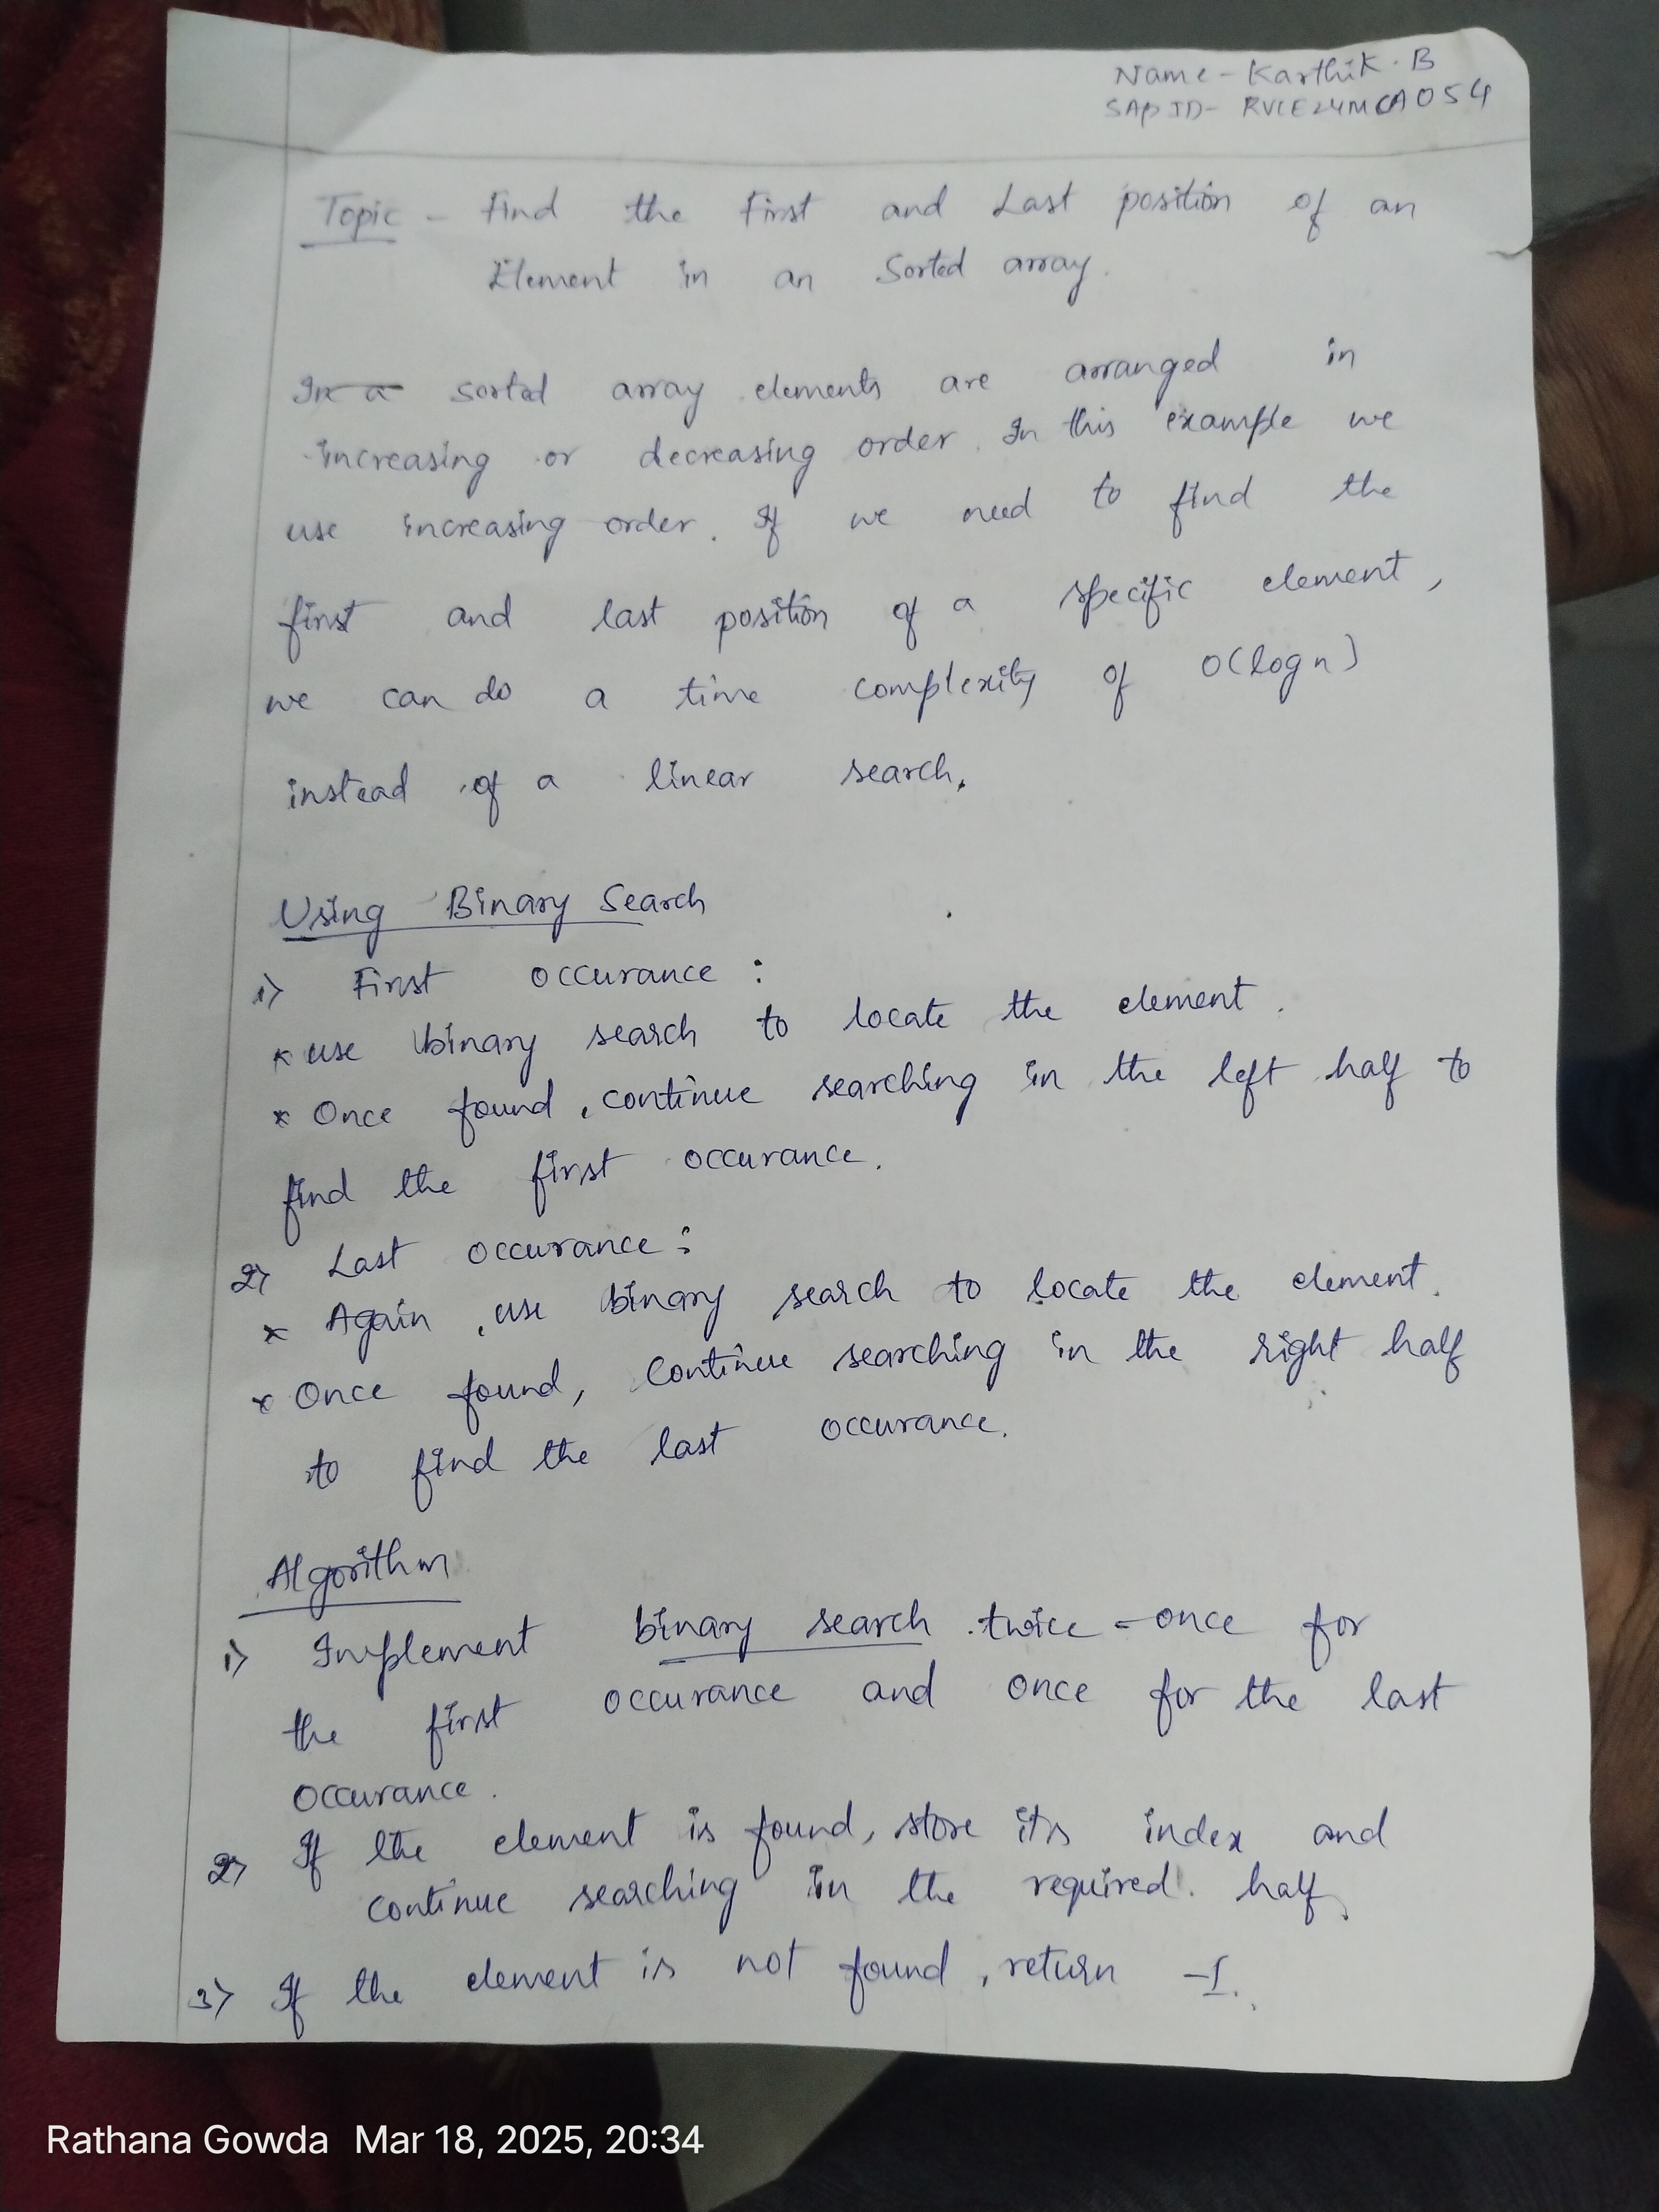 Name - Karthik. B
SAP ID- RVCE24MCA054
Topic - Find the First and Last position of an
Element in an Sorted array.
In a sorted array elements are arranged in
increasing or decreasing order. In this example we
use increasing order. If we need to find the
first and last position of a specific element,
we can do a time complexity of O(log n)
instead of a linear search.
Using Binary Search
1) First occurance :
* use binary search to locate the element.
* Once found, continue searching in the left half to
find the first occurance.
2) Last occurance :
* Again, use binary search to locate the element.
* Once found, Continue searching in the right half
to find the last occurance.
Algorithm
1) Implement binary search twice - once for
the first occurance and once for the last
occurance.
2) If the element is found, store its index and
continue searching in the required half.
3) If the element is not found, return -1.
Rathana Gowda Mar 18, 2025, 20:34